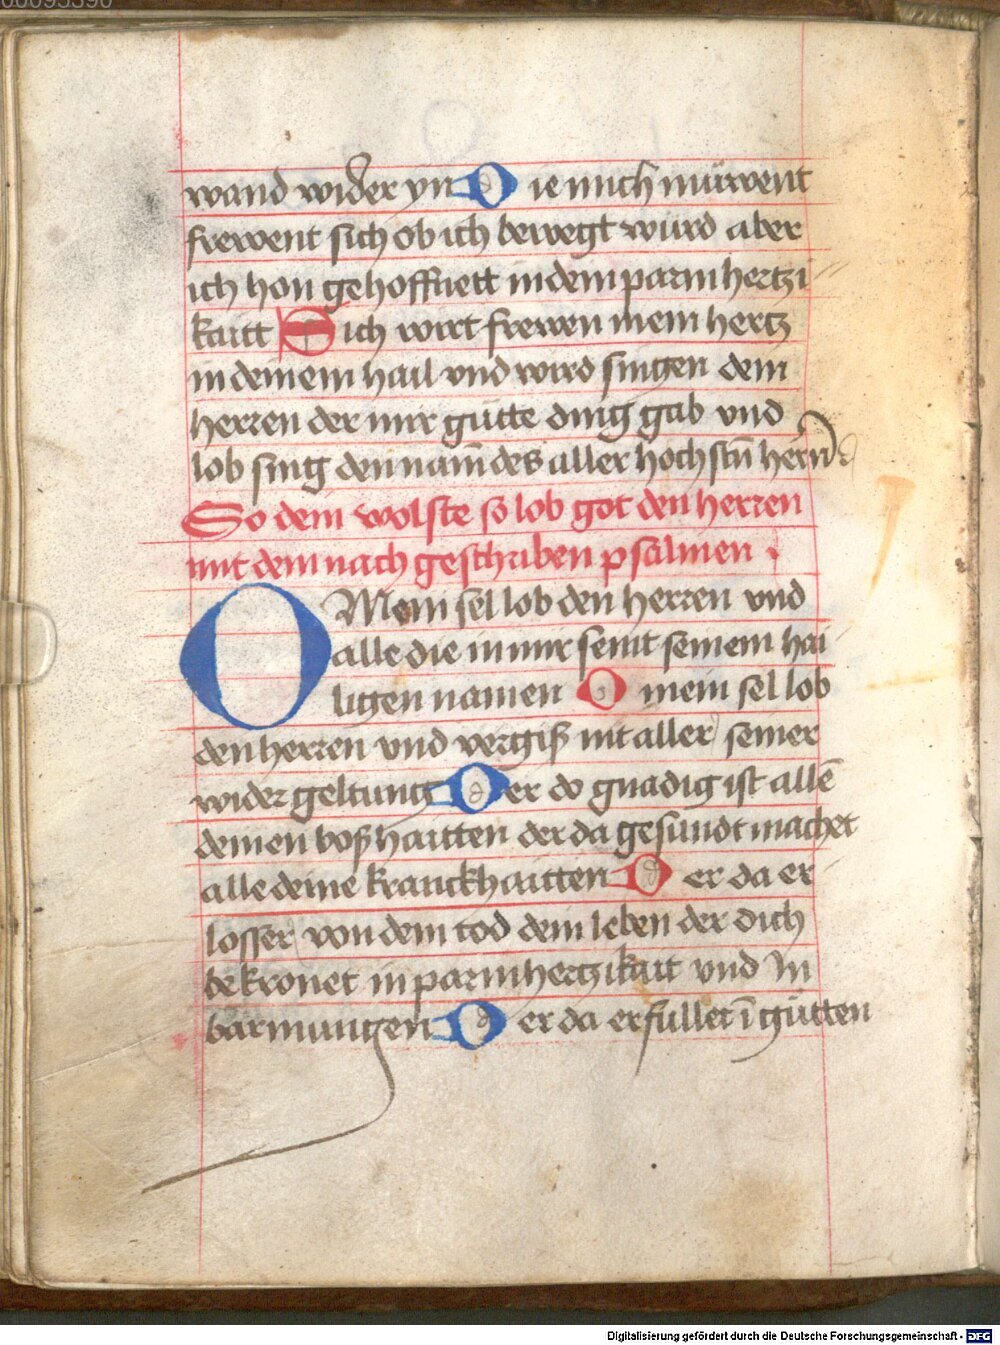 00093390
wand wider yn Die mich müewent
frewent sich ob ich bewegt wurd aber
ich hon gehoffnett in dem parm hertzi
kaitt Sich wirt frewen mein hertz
in deinem hail vnd wird singen dem
herren der mir gütte ding gab vnd
lob sing den nam̄ des aller hochstn̄ hern̄
So dem wolste so lob got den herren
mit dem nach geschriben psalmen .
O Mein sel lob den herren vnd
alle die in mir seint seinem hai
ligen namen O mein sel lob
den herren vnd vergiß nit aller seiner
wider geltung Der do gnadig ist allē
deinen boßhaitten der da gesundt machet
alle deine kranckhaitten Der da er
losset von dem tod dem leben der dich
bekronet in parmhertzikait vnd In
barmungen Der da erfüllet ī gütten
Digitalisierung gefördert durch die Deutsche Forschungsgemeinschaft - DFG